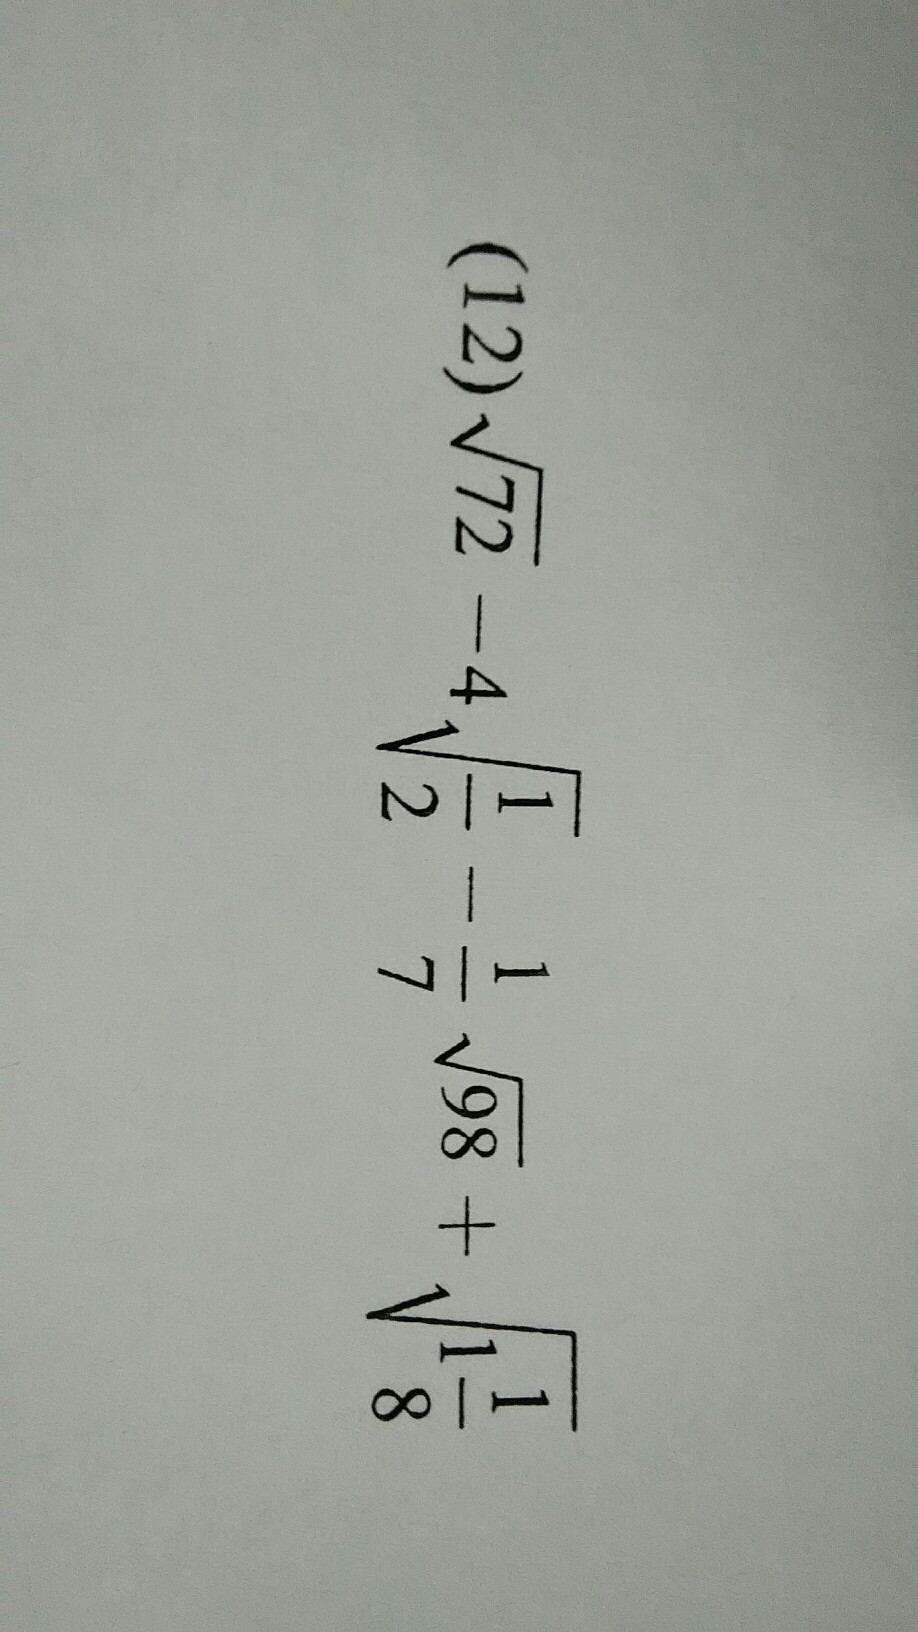 (12)√72 − 4√(1/2) − 1/7 √98 + √(1 1/8)